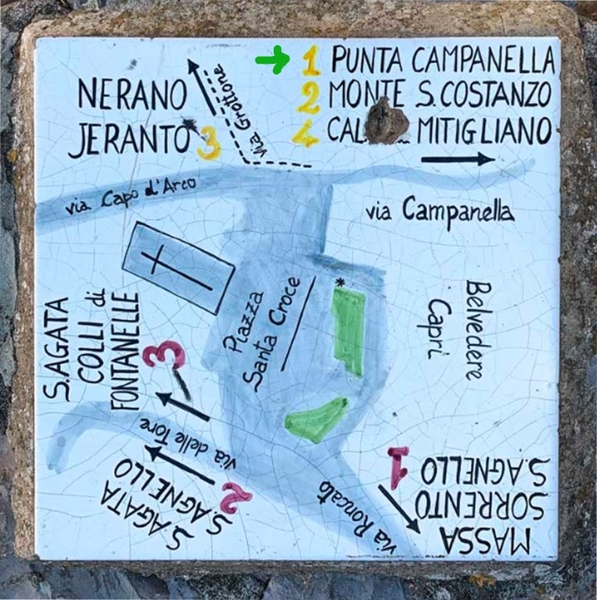 1 PUNTA CAMPANELLA
2 MONTE S.COSTANZO
4 MITIGLIANO
NERANO
JERANTO 3
via Grottone
via Capo d'Arco
via Campanella
Piazza
Santa Croce
*
Belvedere
Capri
S.AGATA
COLLI di
FONTANELLE
3
via delle Tore
S.AGATA
S.AGNELLO
2
via Roncato
1
MASSA
SORRENTO
S.AGNELLO